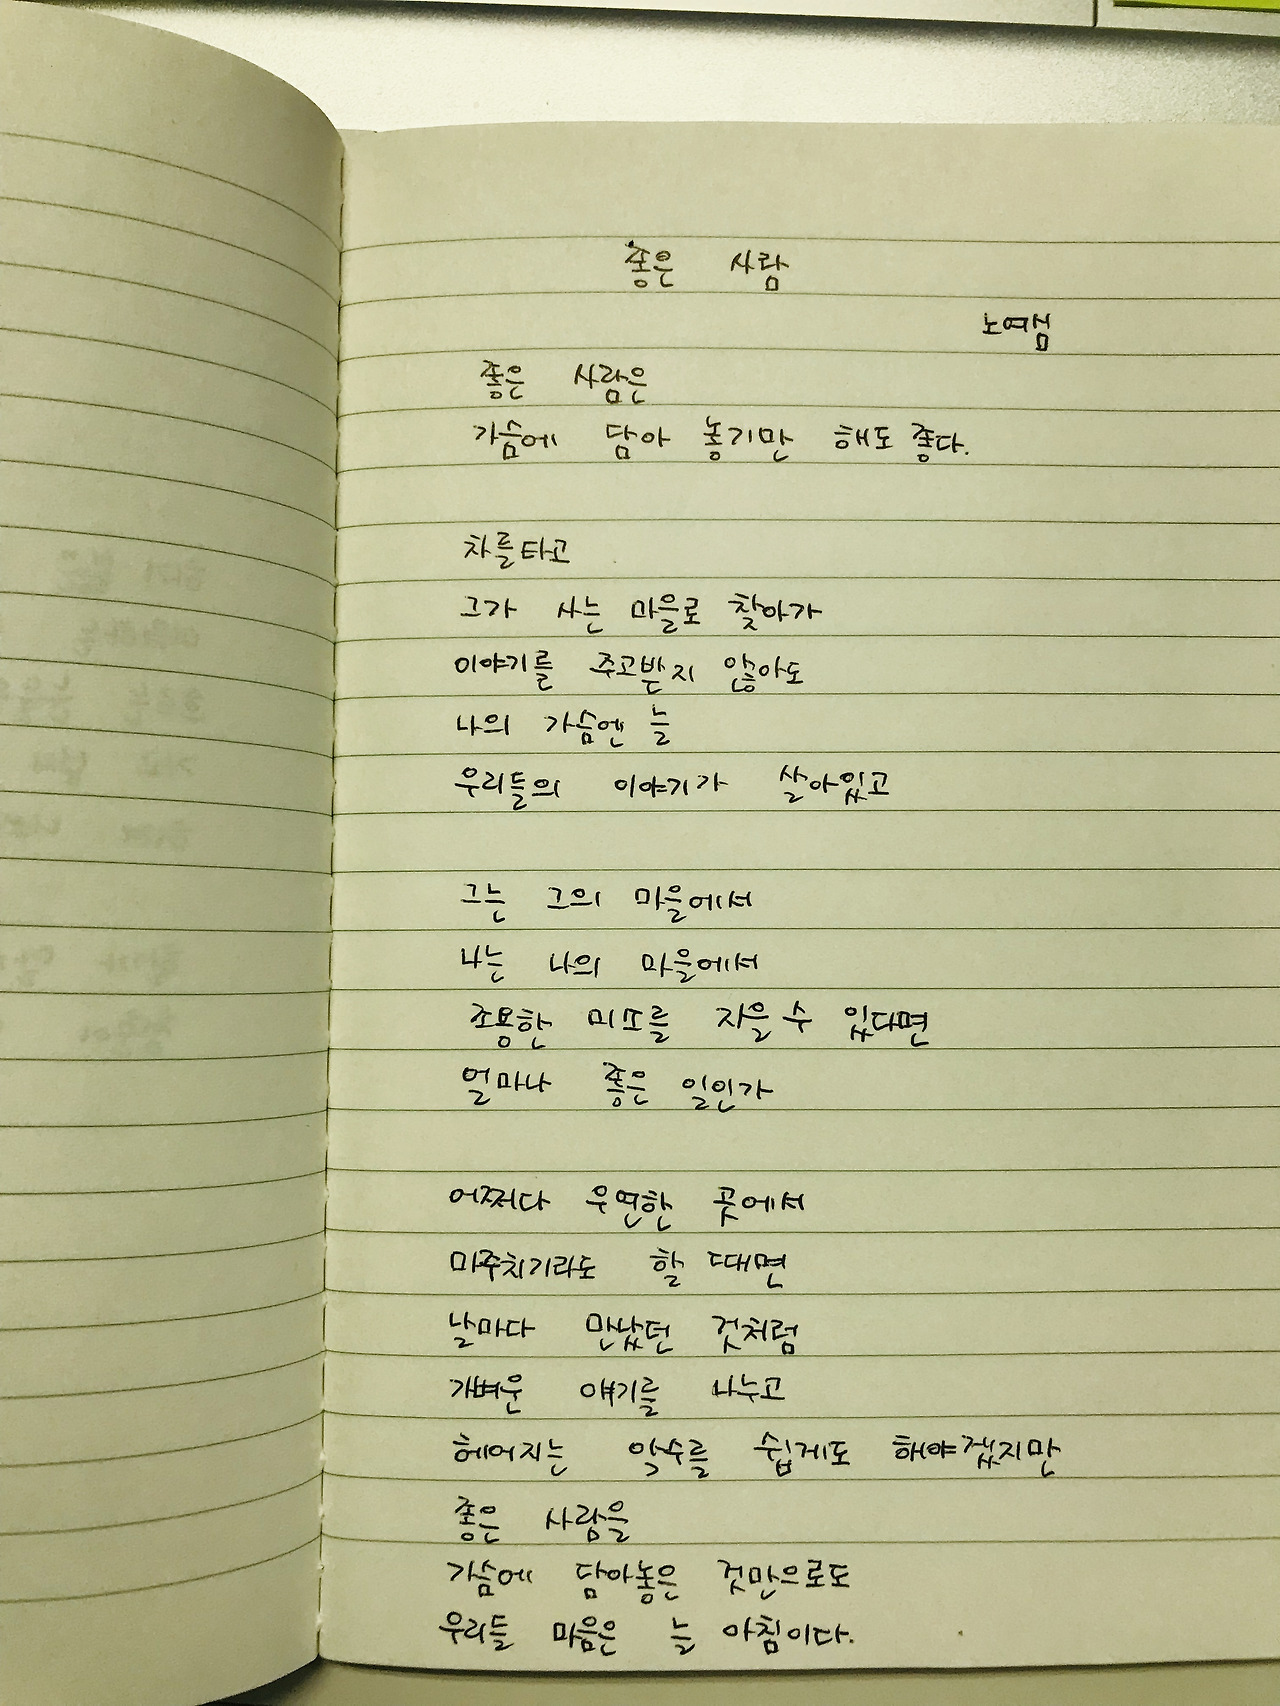 좋은 사람
노여심
좋은 사람은
가슴에 담아 놓기만 해도 좋다.
차를타고
그가 사는 마을로 찾아가
이야기를 주고받지 않아도
나의 가슴엔 늘
우리들의 이야기가 살아있고
그는 그의 마을에서
나는 나의 마을에서
조용한 미소를 지을 수 있다면
얼마나 좋은 일인가
어쩌다 우연한 곳에서
마주치기라도 할 때면
날마다 만났던 것처럼
가벼운 얘기를 나누고
헤어지는 악수를 쉽게도 해야겠지만
좋은 사람을
가슴에 담아놓은 것만으로도
우리들 마음은 늘 아침이다.